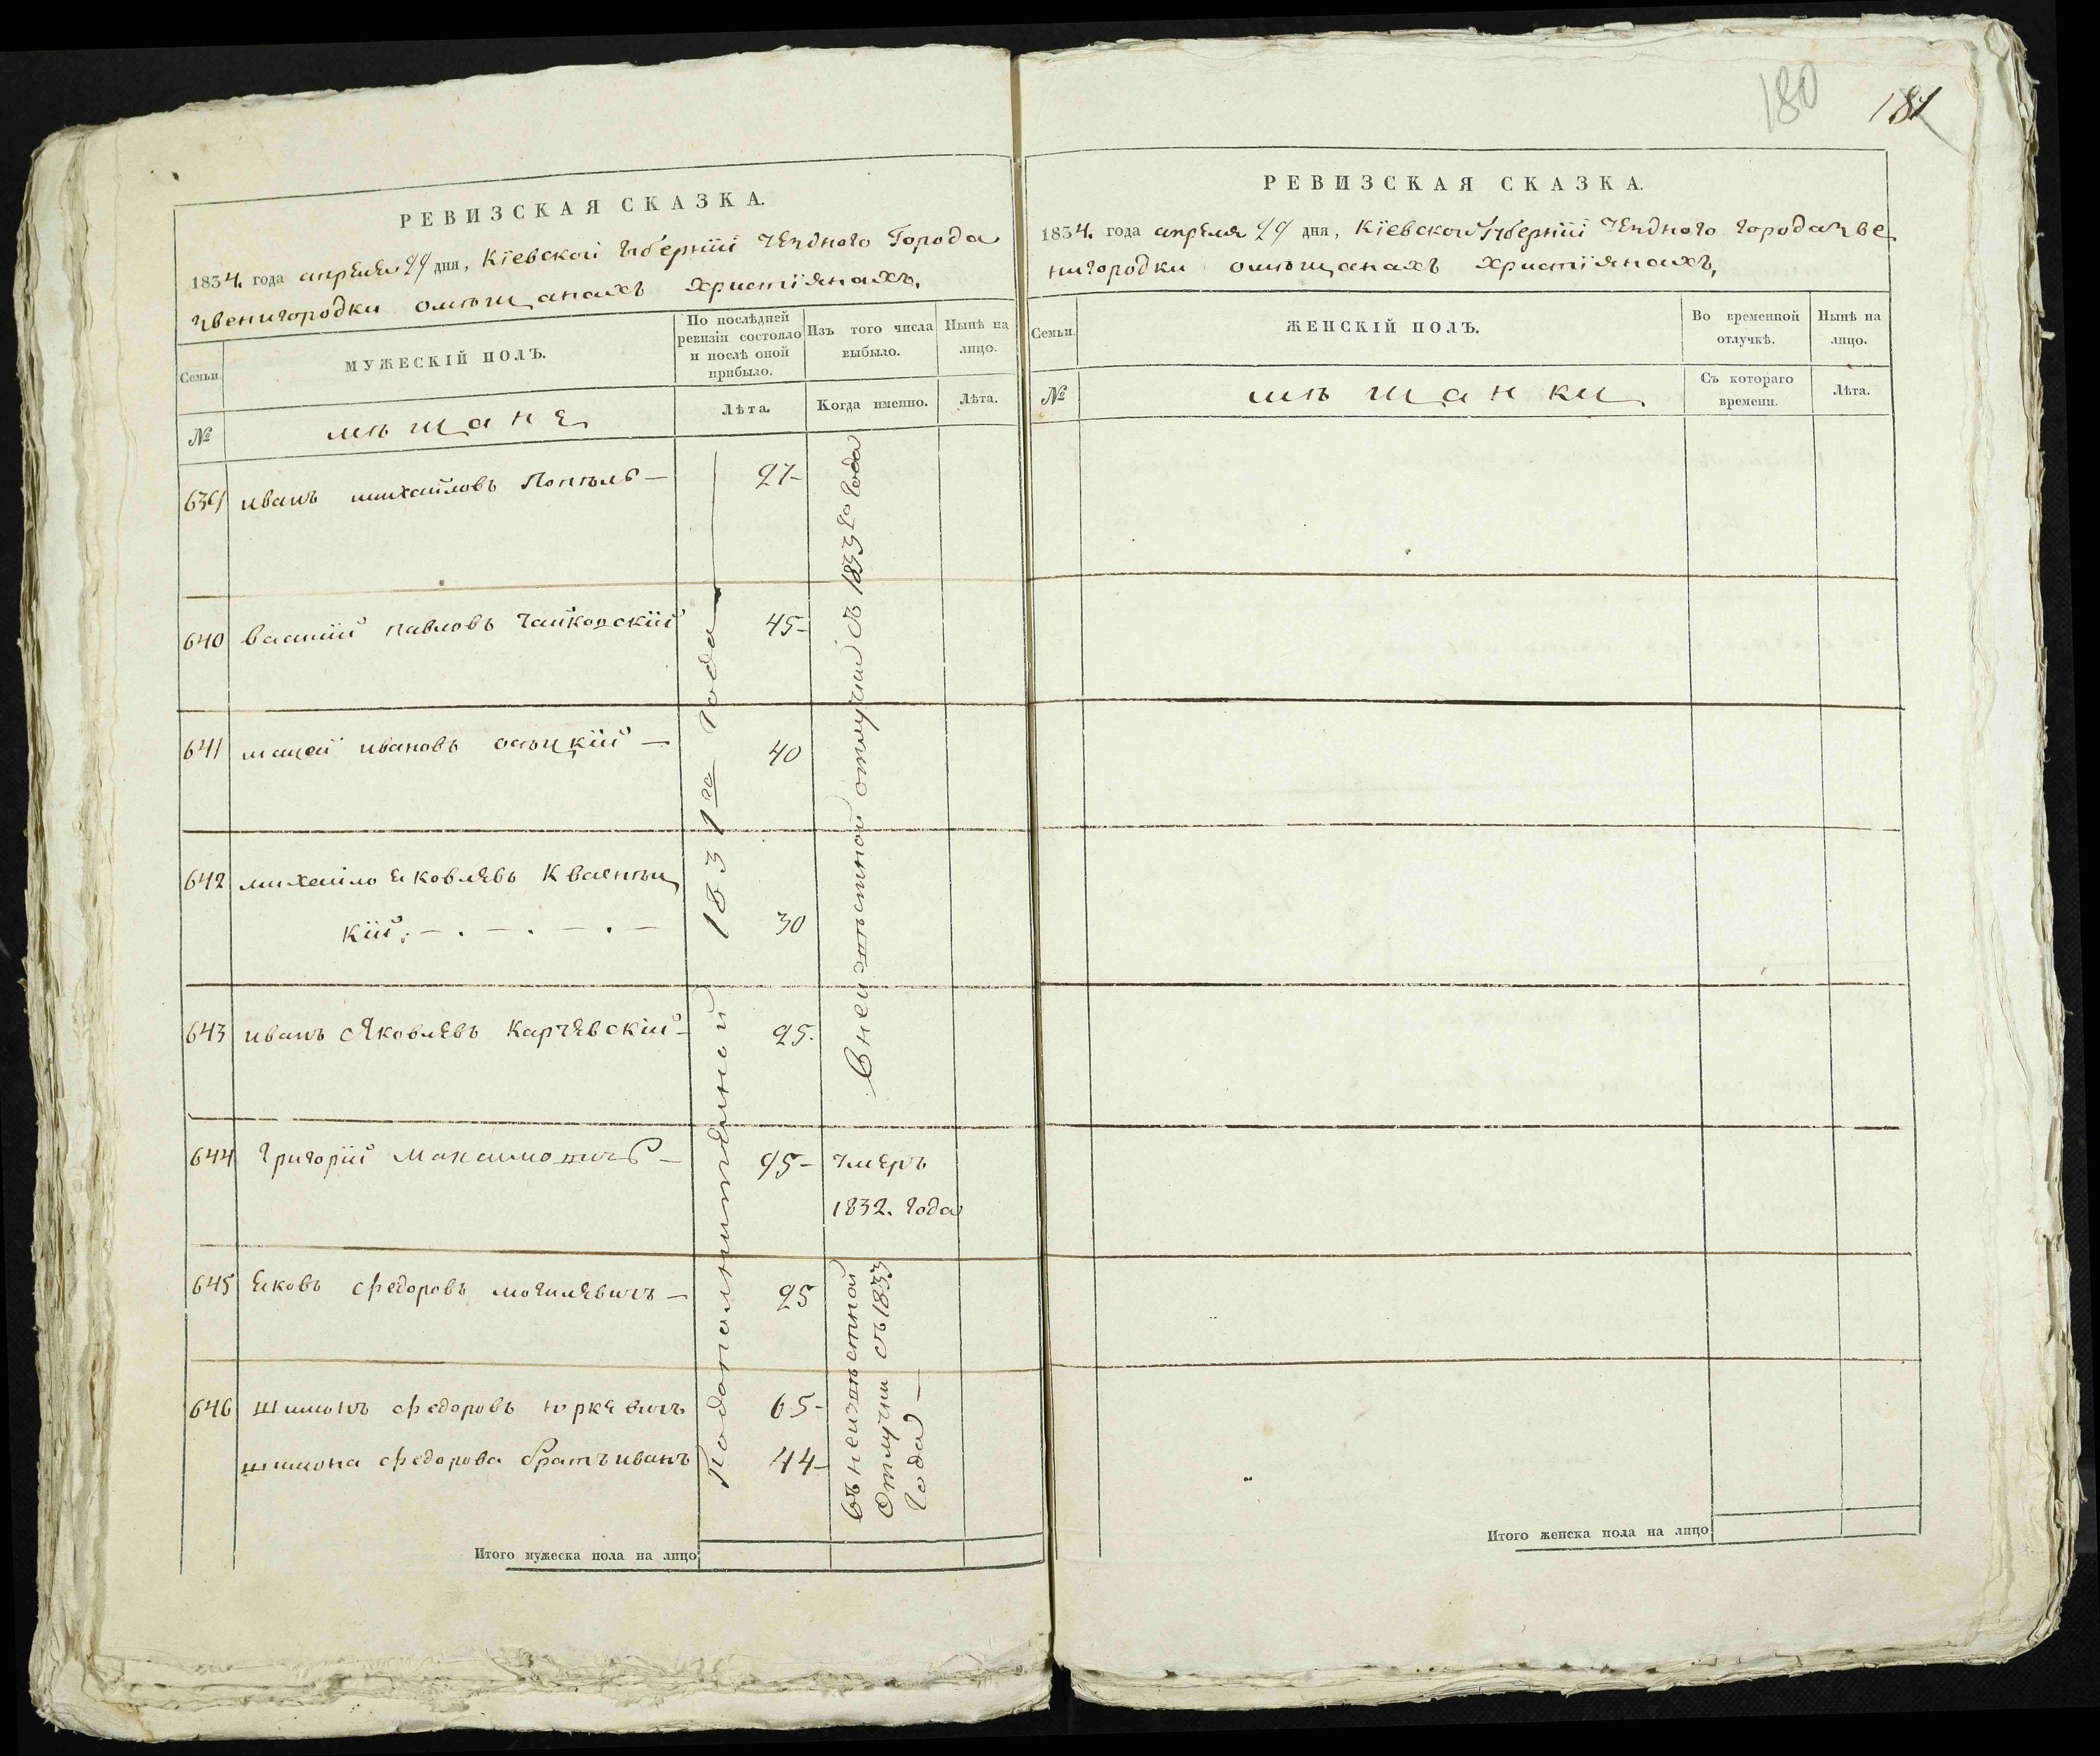 180
181
РЕВИЗСКАЯ СКАЗКА.
1834. года апреля 29 дня, Кіевской губерніи уезднаго Города
Звенигородки омѣщанахъ христіянахъ,
Семьи.
МУЖЕСКІЙ ПОЛЪ.
По послѣдней ревизіи состояло и послѣ оной прибыло.
Изъ того числа выбыло.
Нынѣ на лицо.
№
мѣщане
Лѣта.
Когда именно.
Лѣта.
иванъ михайловъ 27-
640 василій павловъ Чайковскій 45-
641 мацей ивановъ 40
642 михайло яковлевъ
кій. 30
643 иванъ Яковлевъ Карчевскій- 25.
644 Григорій 25- умеръ
1832. года
645 яковъ федоровъ 25
646 шимонъ федоровъ юркевичъ 65-
шимона федорова братъ иванъ 44-
Подополнительной 1831го года
Внеизвѣстной отлучки съ 1833го года
въ неизвѣстной
отлучки съ 1833
года
Итого мужеска пола на лицо
РЕВИЗСКАЯ СКАЗКА.
1834. года апреля 29 дня, Кіевской губерніи уезднаго города Зве
нигородки омѣщанахъ христіянахъ,
Семьи.
ЖЕНСКІЙ ПОЛЪ.
Во временной отлучкѣ.
Нынѣ на лицо.
№
мѣщанки
Съ котораго времени.
Лѣта.
Итого женска пола на лицо